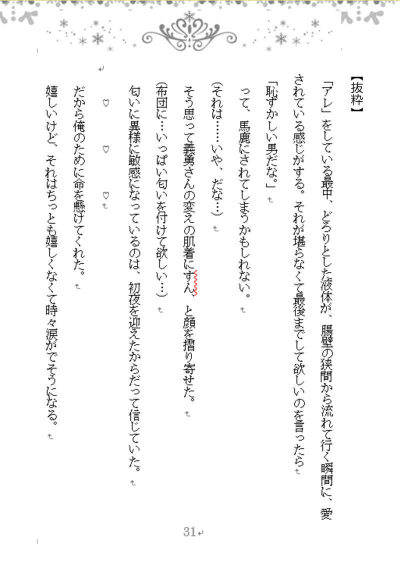 【抜粋】
「アレ」をしている最中、どろりとした液体が、腸壁の狭間から流れて行く瞬間に、愛
されている感じがする。それが堪らなくて最後までして欲しいのを言ったら
「恥ずかしい男だな。」
って、馬鹿にされてしまうかもしれない。
(それは……いや、だな…)
そう思って義勇さんの変えの肌着にすん、と顔を摺り寄せた。
(布団に…いっぱい匂いを付けて欲しい…)
匂いに異様に敏感になっているのは、初夜を迎えたからだって信じていた。
♡　♡　♡
だから俺のために命を懸けてくれた。
嬉しいけど、それはちっとも嬉しくなくて時々涙がでそうになる。
31